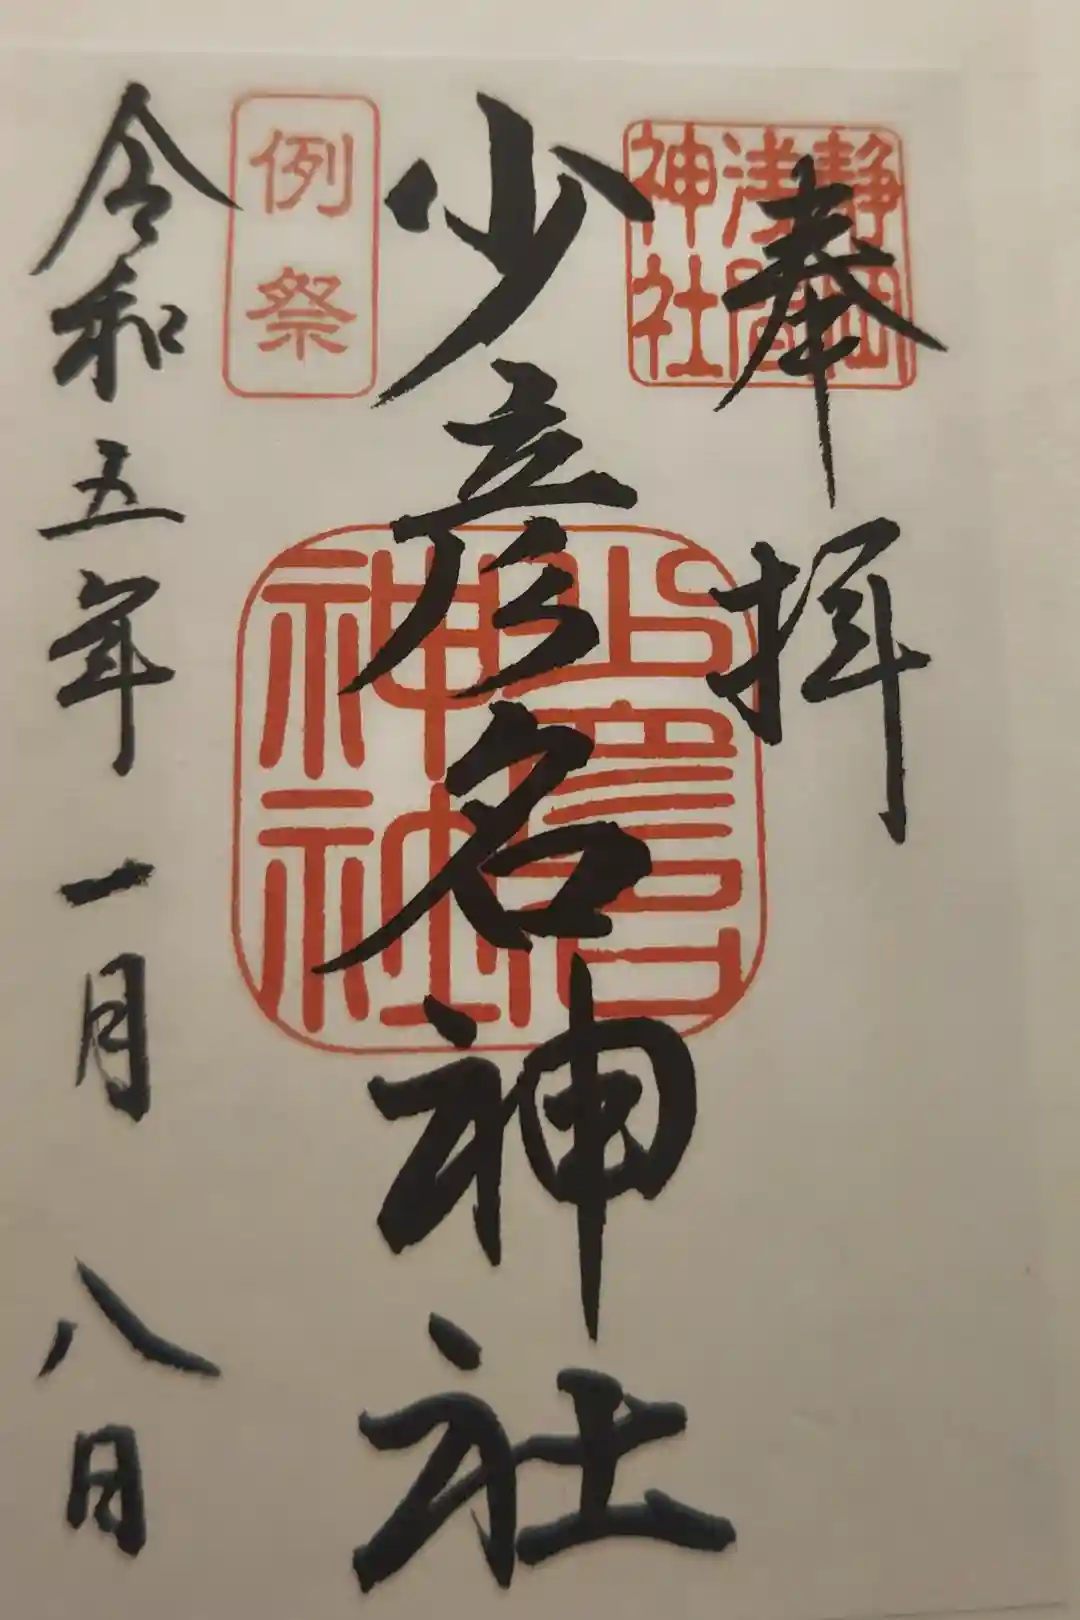 奉拝
静岡浅間神社
少彦名神社
神社
例祭
令和五年一月八日